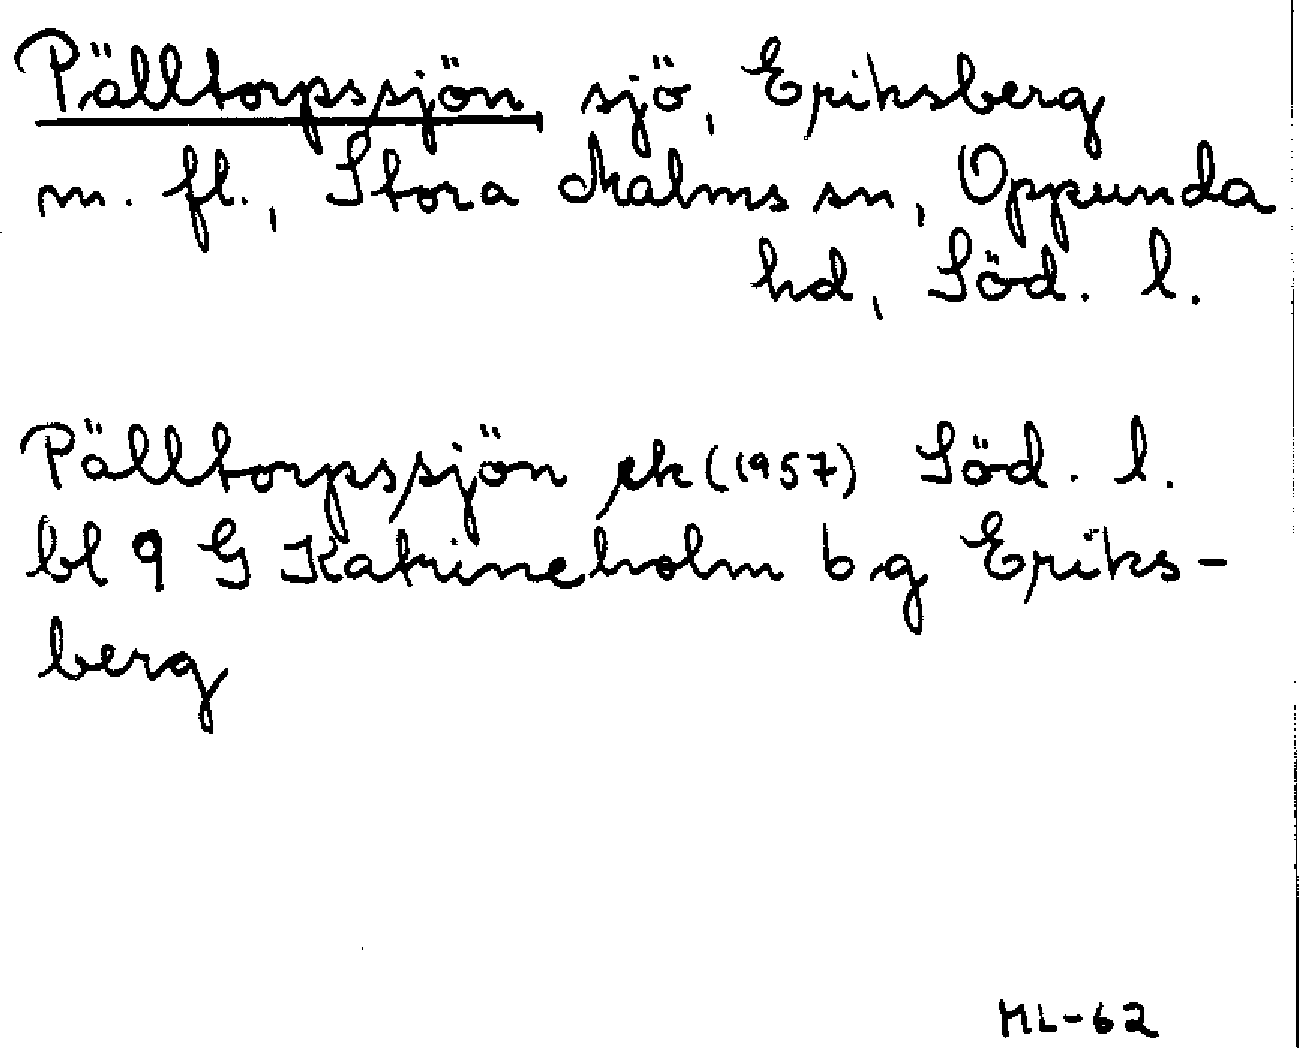 Pälltorpssjön sjö, Eriksberg
m. fl., Stora Malms sn, Oppunda
hd, Söd. l.
Pälltorpssjön ek (1957) Söd. l.
bl 9 G Katrineholm b.g Eriks-
berg
ML-62